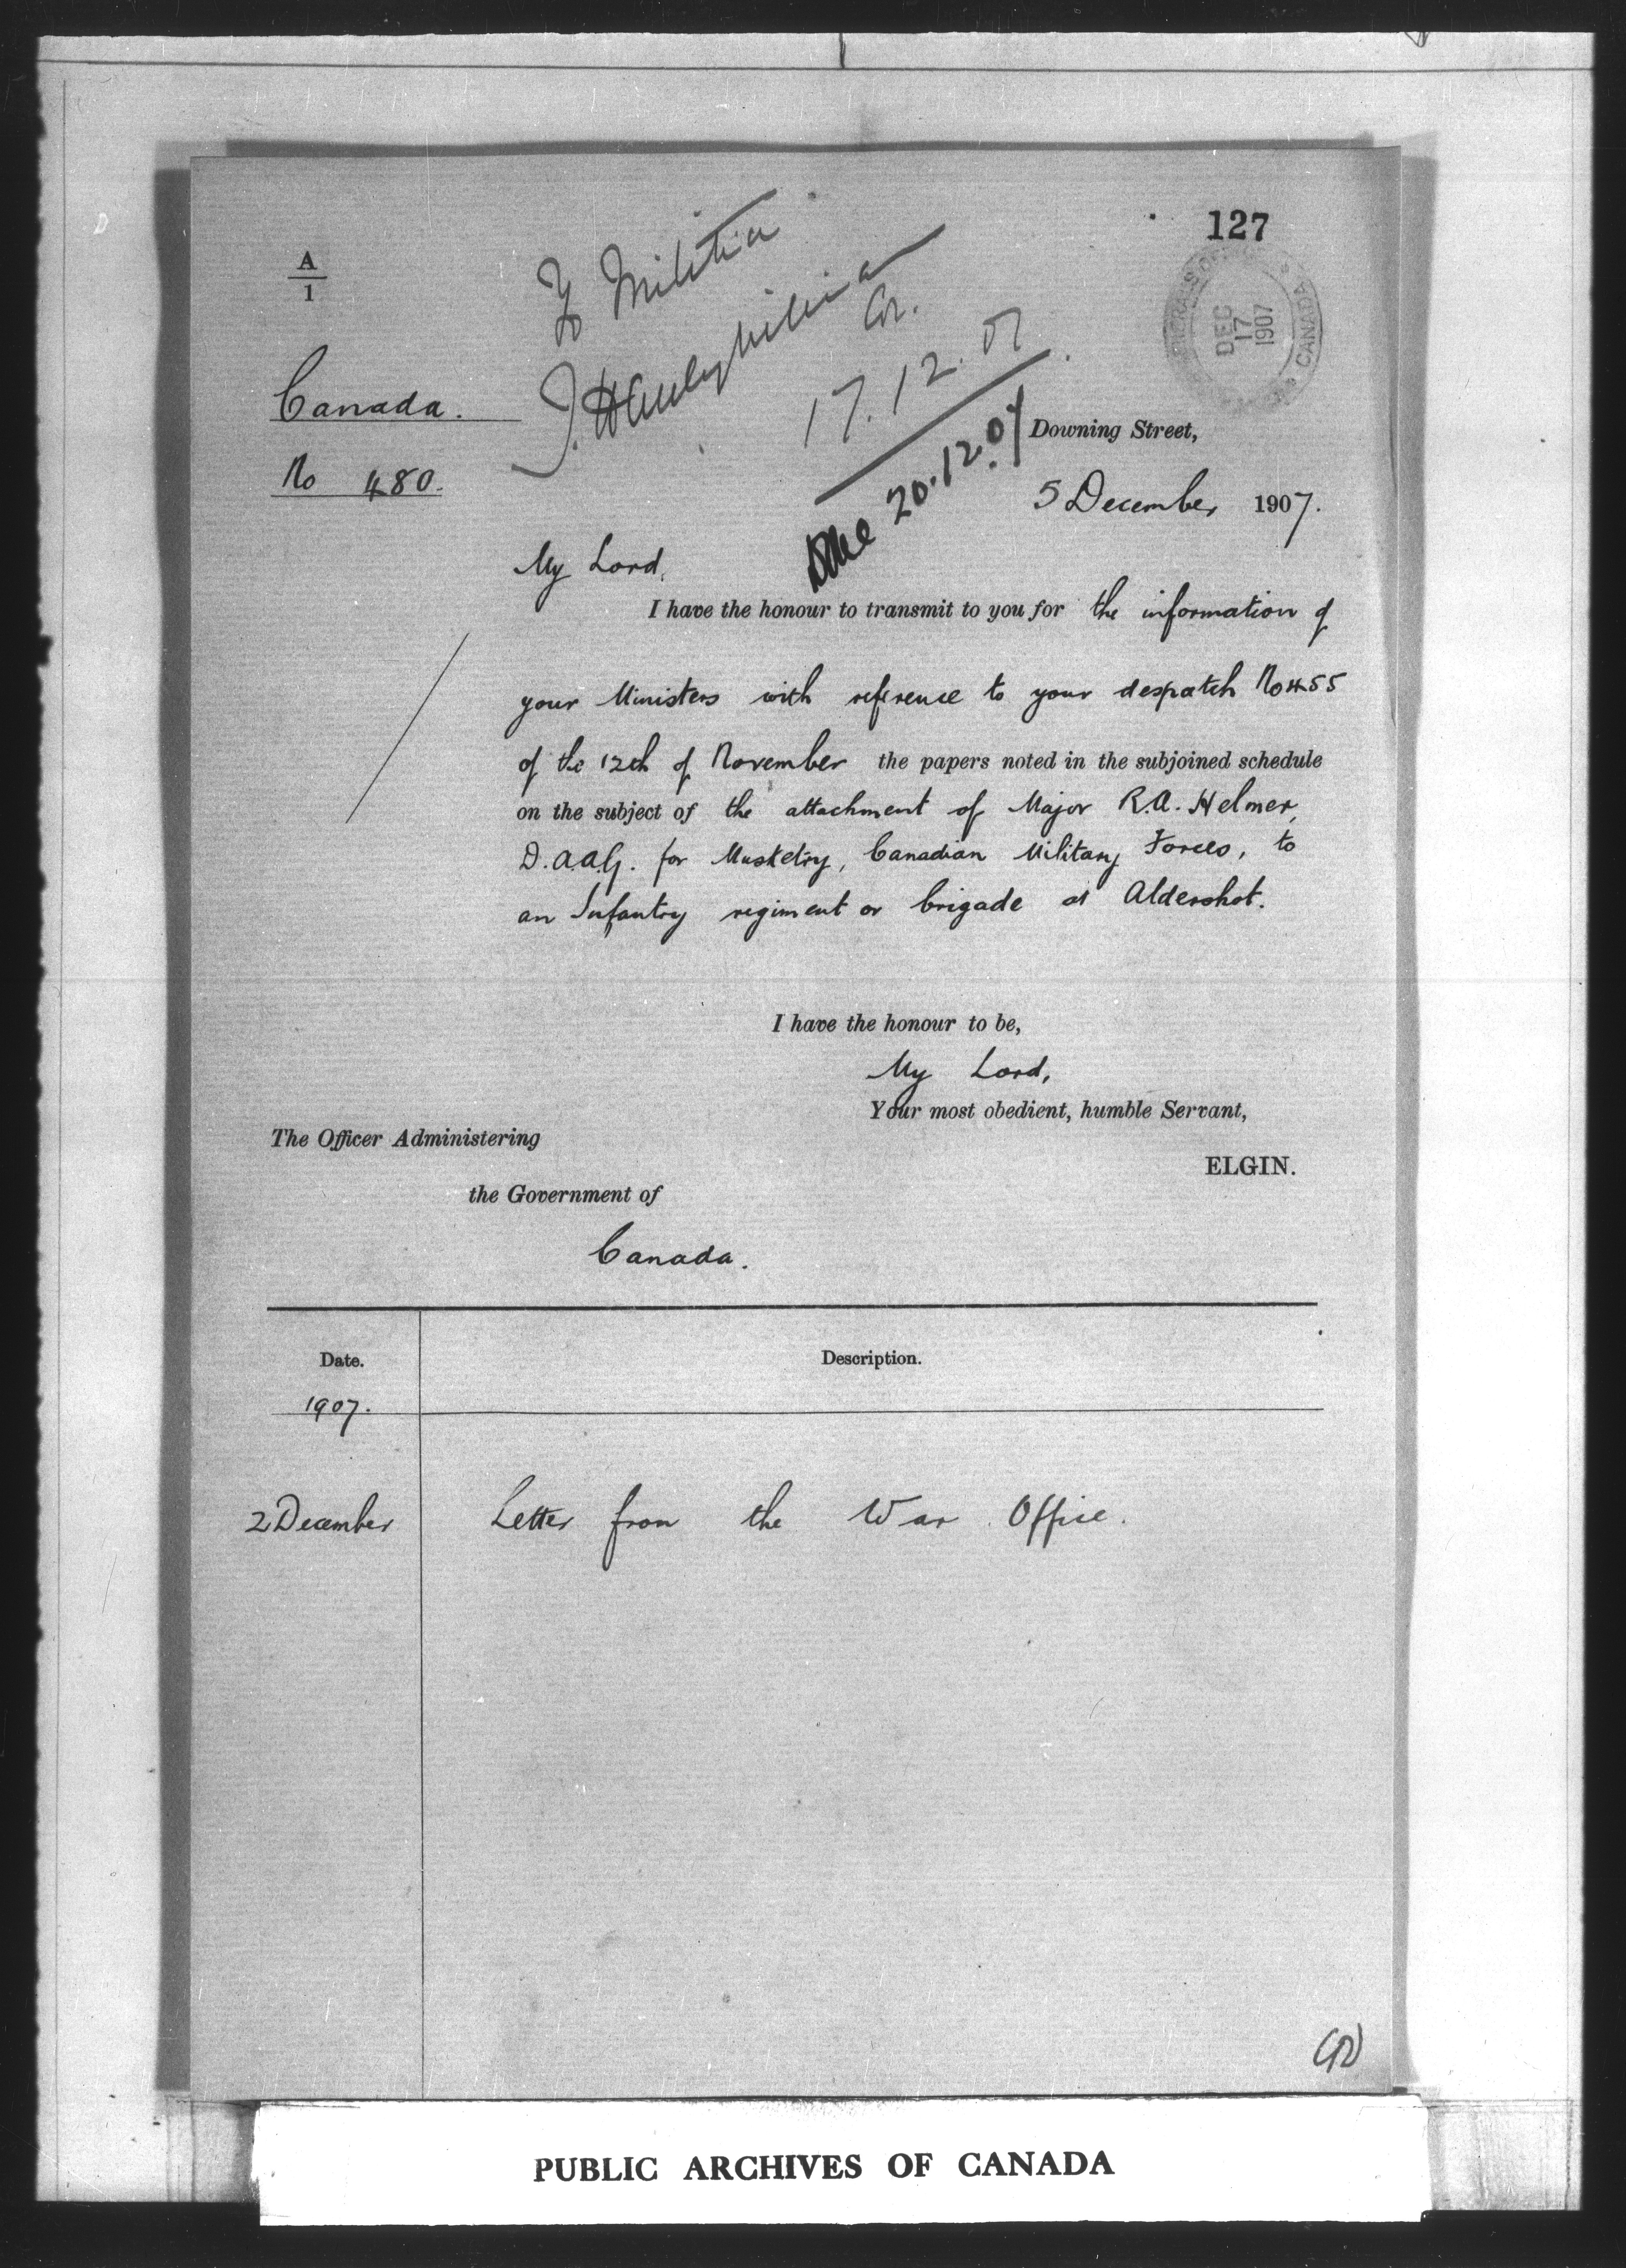 127
A
1
To Militia
J. Hanbury Williams
Col.
17.12.07
DEC
17
1907
CANADA
Canada.
No 480.
20.12.07
Downing Street,
5 December 1907.
My Lord,
I have the honour to transmit to you for the information of
your Ministers with reference to your despatch No 455
of the 12th of November the papers noted in the subjoined schedule
on the subject of the attachment of Major R.A. Helmer,
D.A.A.G. for Musketry, Canadian Military Forces, to
an Infantry regiment or brigade at Aldershot.
I have the honour to be,
My Lord,
Your most obedient, humble Servant,
ELGIN.
The Officer Administering
the Government of
Canada.
Date. Description.
1907.
2 December Letter from the War Office.
PUBLIC ARCHIVES OF CANADA